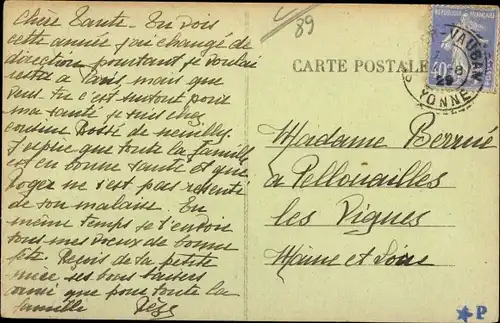 Chère Tante - Tu vois
cette année j'ai changé de
direction pourtant je voulais
rester à Paris mais que
veux tu c'est surtout pour
ma santé je suis chez
cousine de neuilly.
J'espère que toute la famille
est en bonne santé et que
Roger ne s'est pas ressenti
de son malaise. En
même temps je t'envoie
tous mes voeux de bonne
fête. Reçois de ta petite
nièce ses bons baisers
ainsi que pour toute la
famille
89
CARTE POSTALE
RÉPUBLIQUE FRANÇAISE
40c
YONNE
Madame Bernié
à Pellouailles
les Vignes
Maine et Loire
P